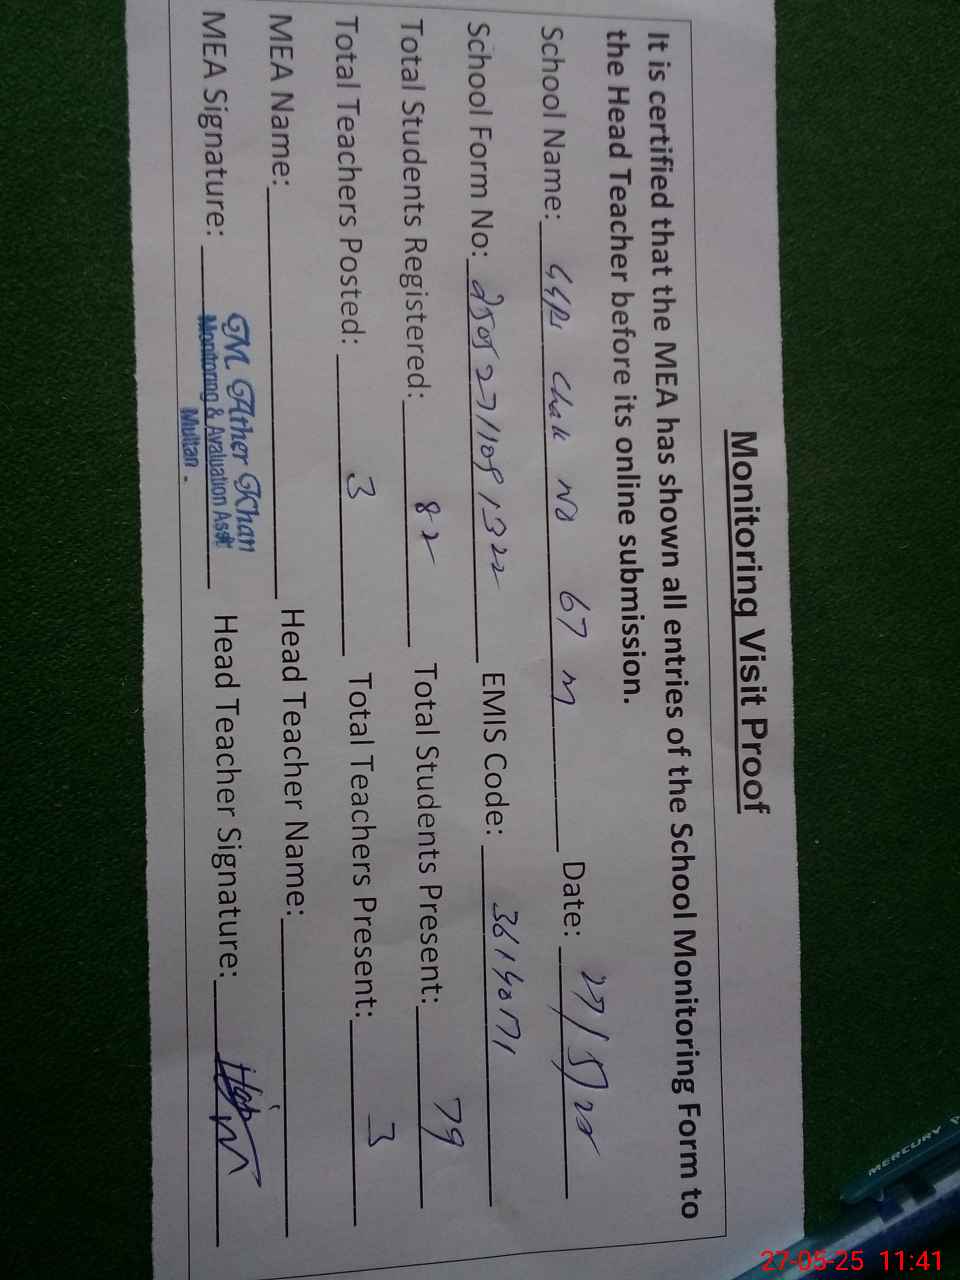 Monitoring Visit Proof
It is certified that the MEA has shown all entries of the School Monitoring Form to
the Head Teacher before its online submission.
School Name: GGPS Chak No 67 M Date: 27/5/25
School Form No: 25052711091322 EMIS Code: 36140171
Total Students Registered: 82 Total Students Present: 79
Total Teachers Posted: 3 Total Teachers Present: 3
MEA Name: Head Teacher Name:
MEA Signature: Head Teacher Signature:
M Ather Khan
Monitoring & Avaluation Asstt
Multan.
MERCURY
27-05-25 11:41